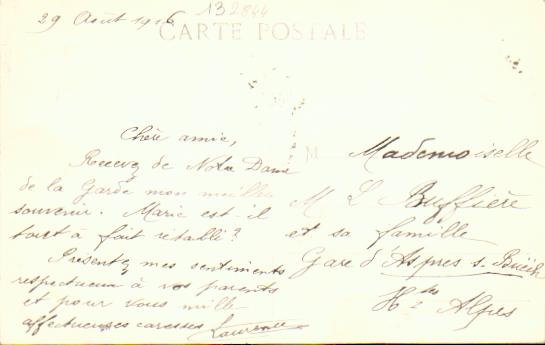 29 Août 1916
132844
CARTE POSTALE
Chère amie,
Recevez de Notre Dame
de la Garde mon meille
souvenir. Marie est-il
tout à fait rétabli?
Présentez mes sentiments
respectueux à vos parents
et pour vous mille
affectueuses caresses
Laurence
M
Mademoiselle
M L Buffière
et sa famille
Gare d'Aspres s. Büech
Htes Alpes